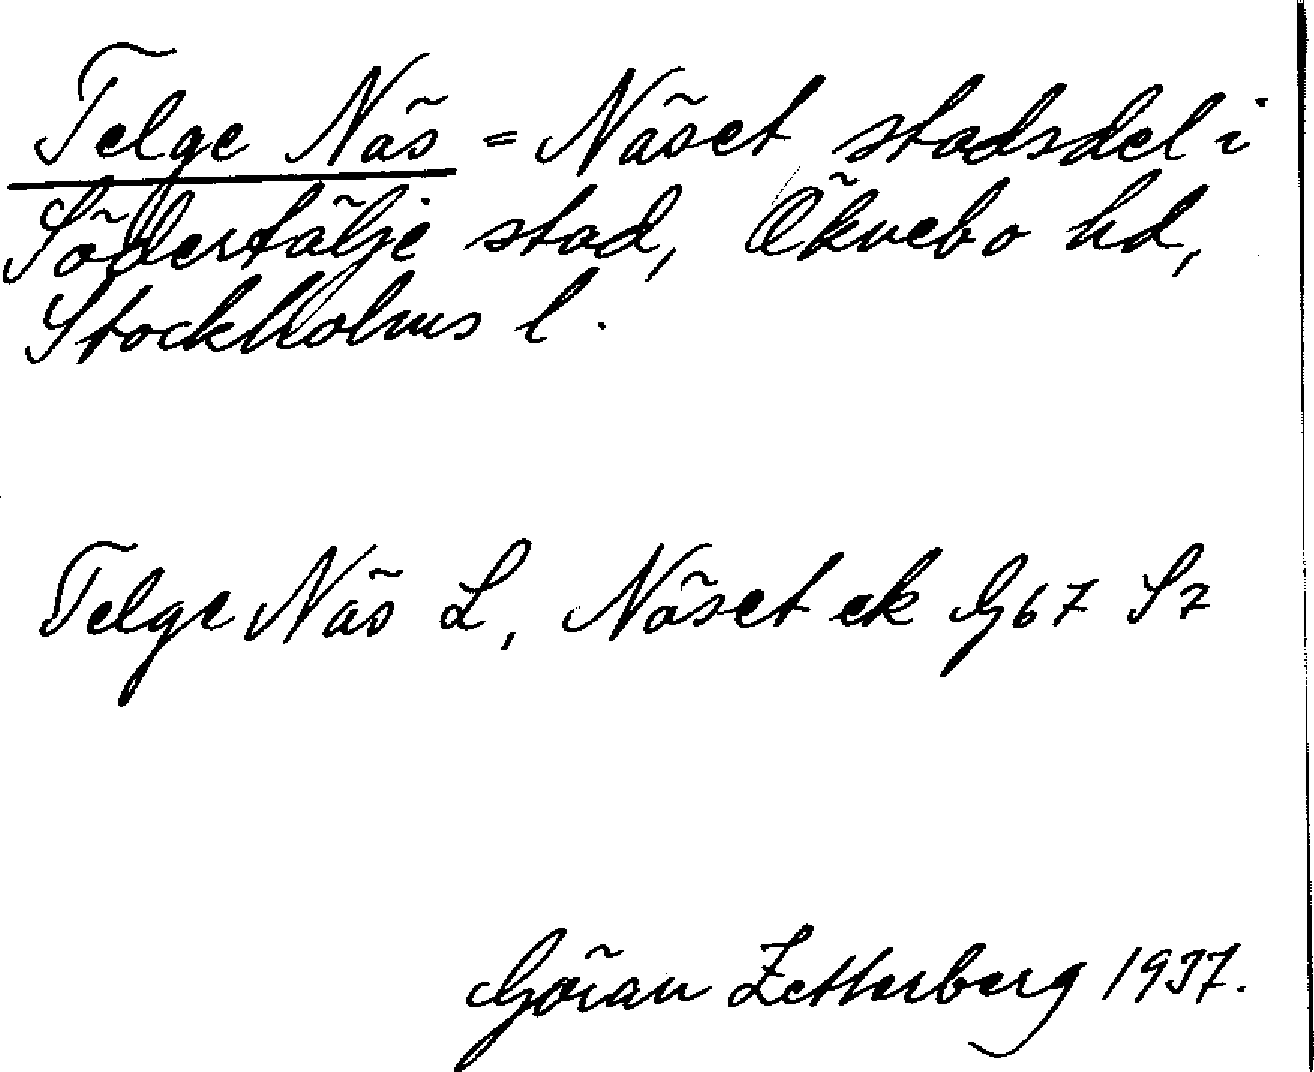 Telge Näs = Näset stadsdel i
Södertälje stad, Öknebo hd,
Stockholms l.
Telge Näs L, Näset ek G67 S7
Göran Zetterberg 1937.